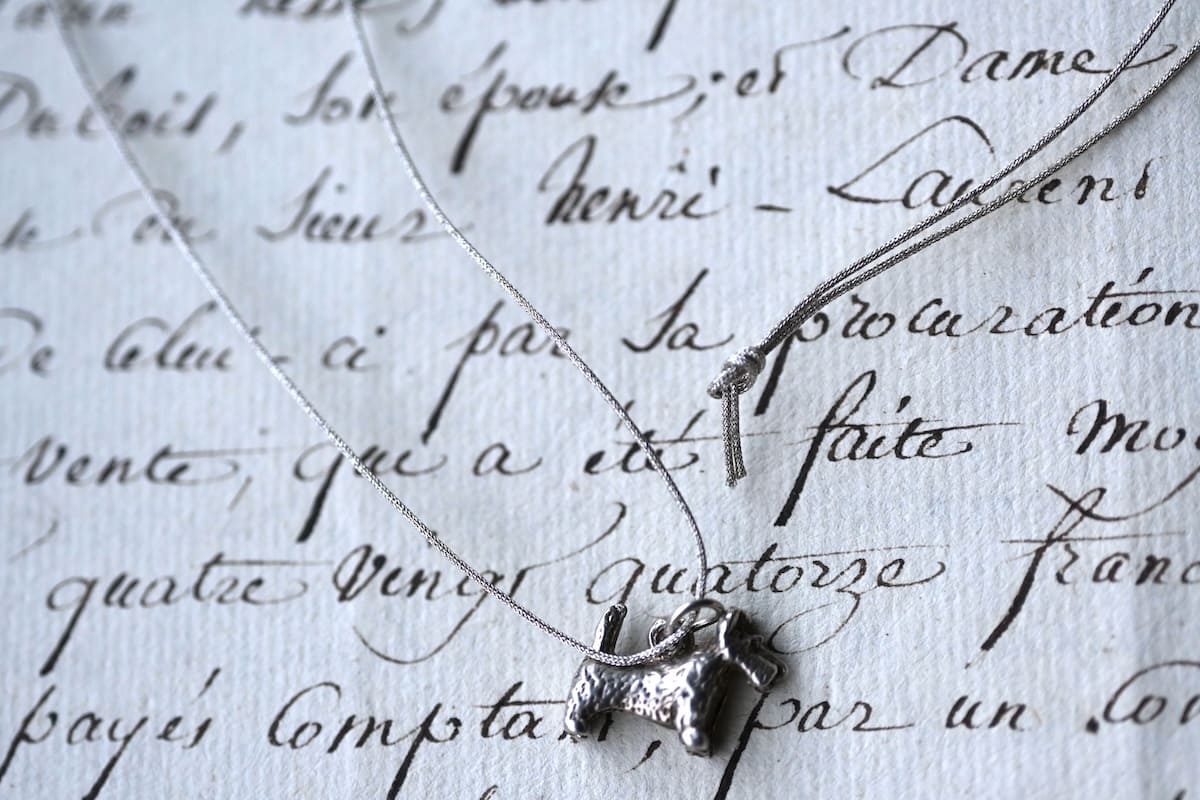 Dubois, son épouse ; et Dame
du sieur henri - Laurens
De Celui - ci par sa procuration
vente, qui a été faite
quatre vingt quatorze
payés Comptant, par un